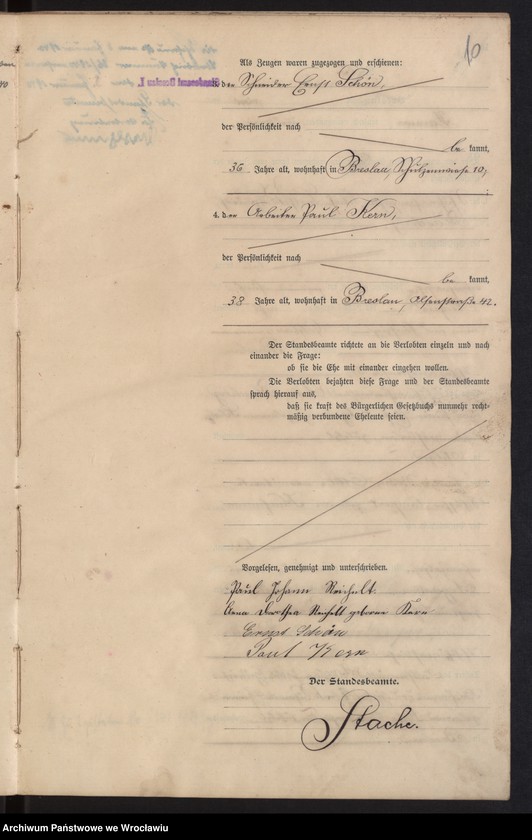 6
Als Zeugen waren zugezogen und erschienen:
der Schneider Ernst Schön,
der Persönlichkeit nach
be kannt,
36 Jahre alt, wohnhaft in Breslau, 10,
4. der Arbeiter Paul Kern,
der Persönlichkeit nach
be kannt,
38 Jahre alt, wohnhaft in Breslau, 42.
Der Standesbeamte richtete an die Verlobten einzeln und nach
einander die Frage:
ob sie die Ehe mit einander eingehen wollen.
Die Verlobten bejahten diese Frage und der Standesbeamte
sprach hierauf aus,
daß sie kraft des Bürgerlichen Gesetzbuchs nunmehr recht-
mäßig verbundene Eheleute seien.
Vorgelesen, genehmigt und unterschrieben.
Paul Johann Reichelt.
Anna Dorothea Reichelt geborene Kern
Ernst Schön
Paul Kern
Der Standesbeamte.
Stache.
Archiwum Państwowe we Wrocławiu